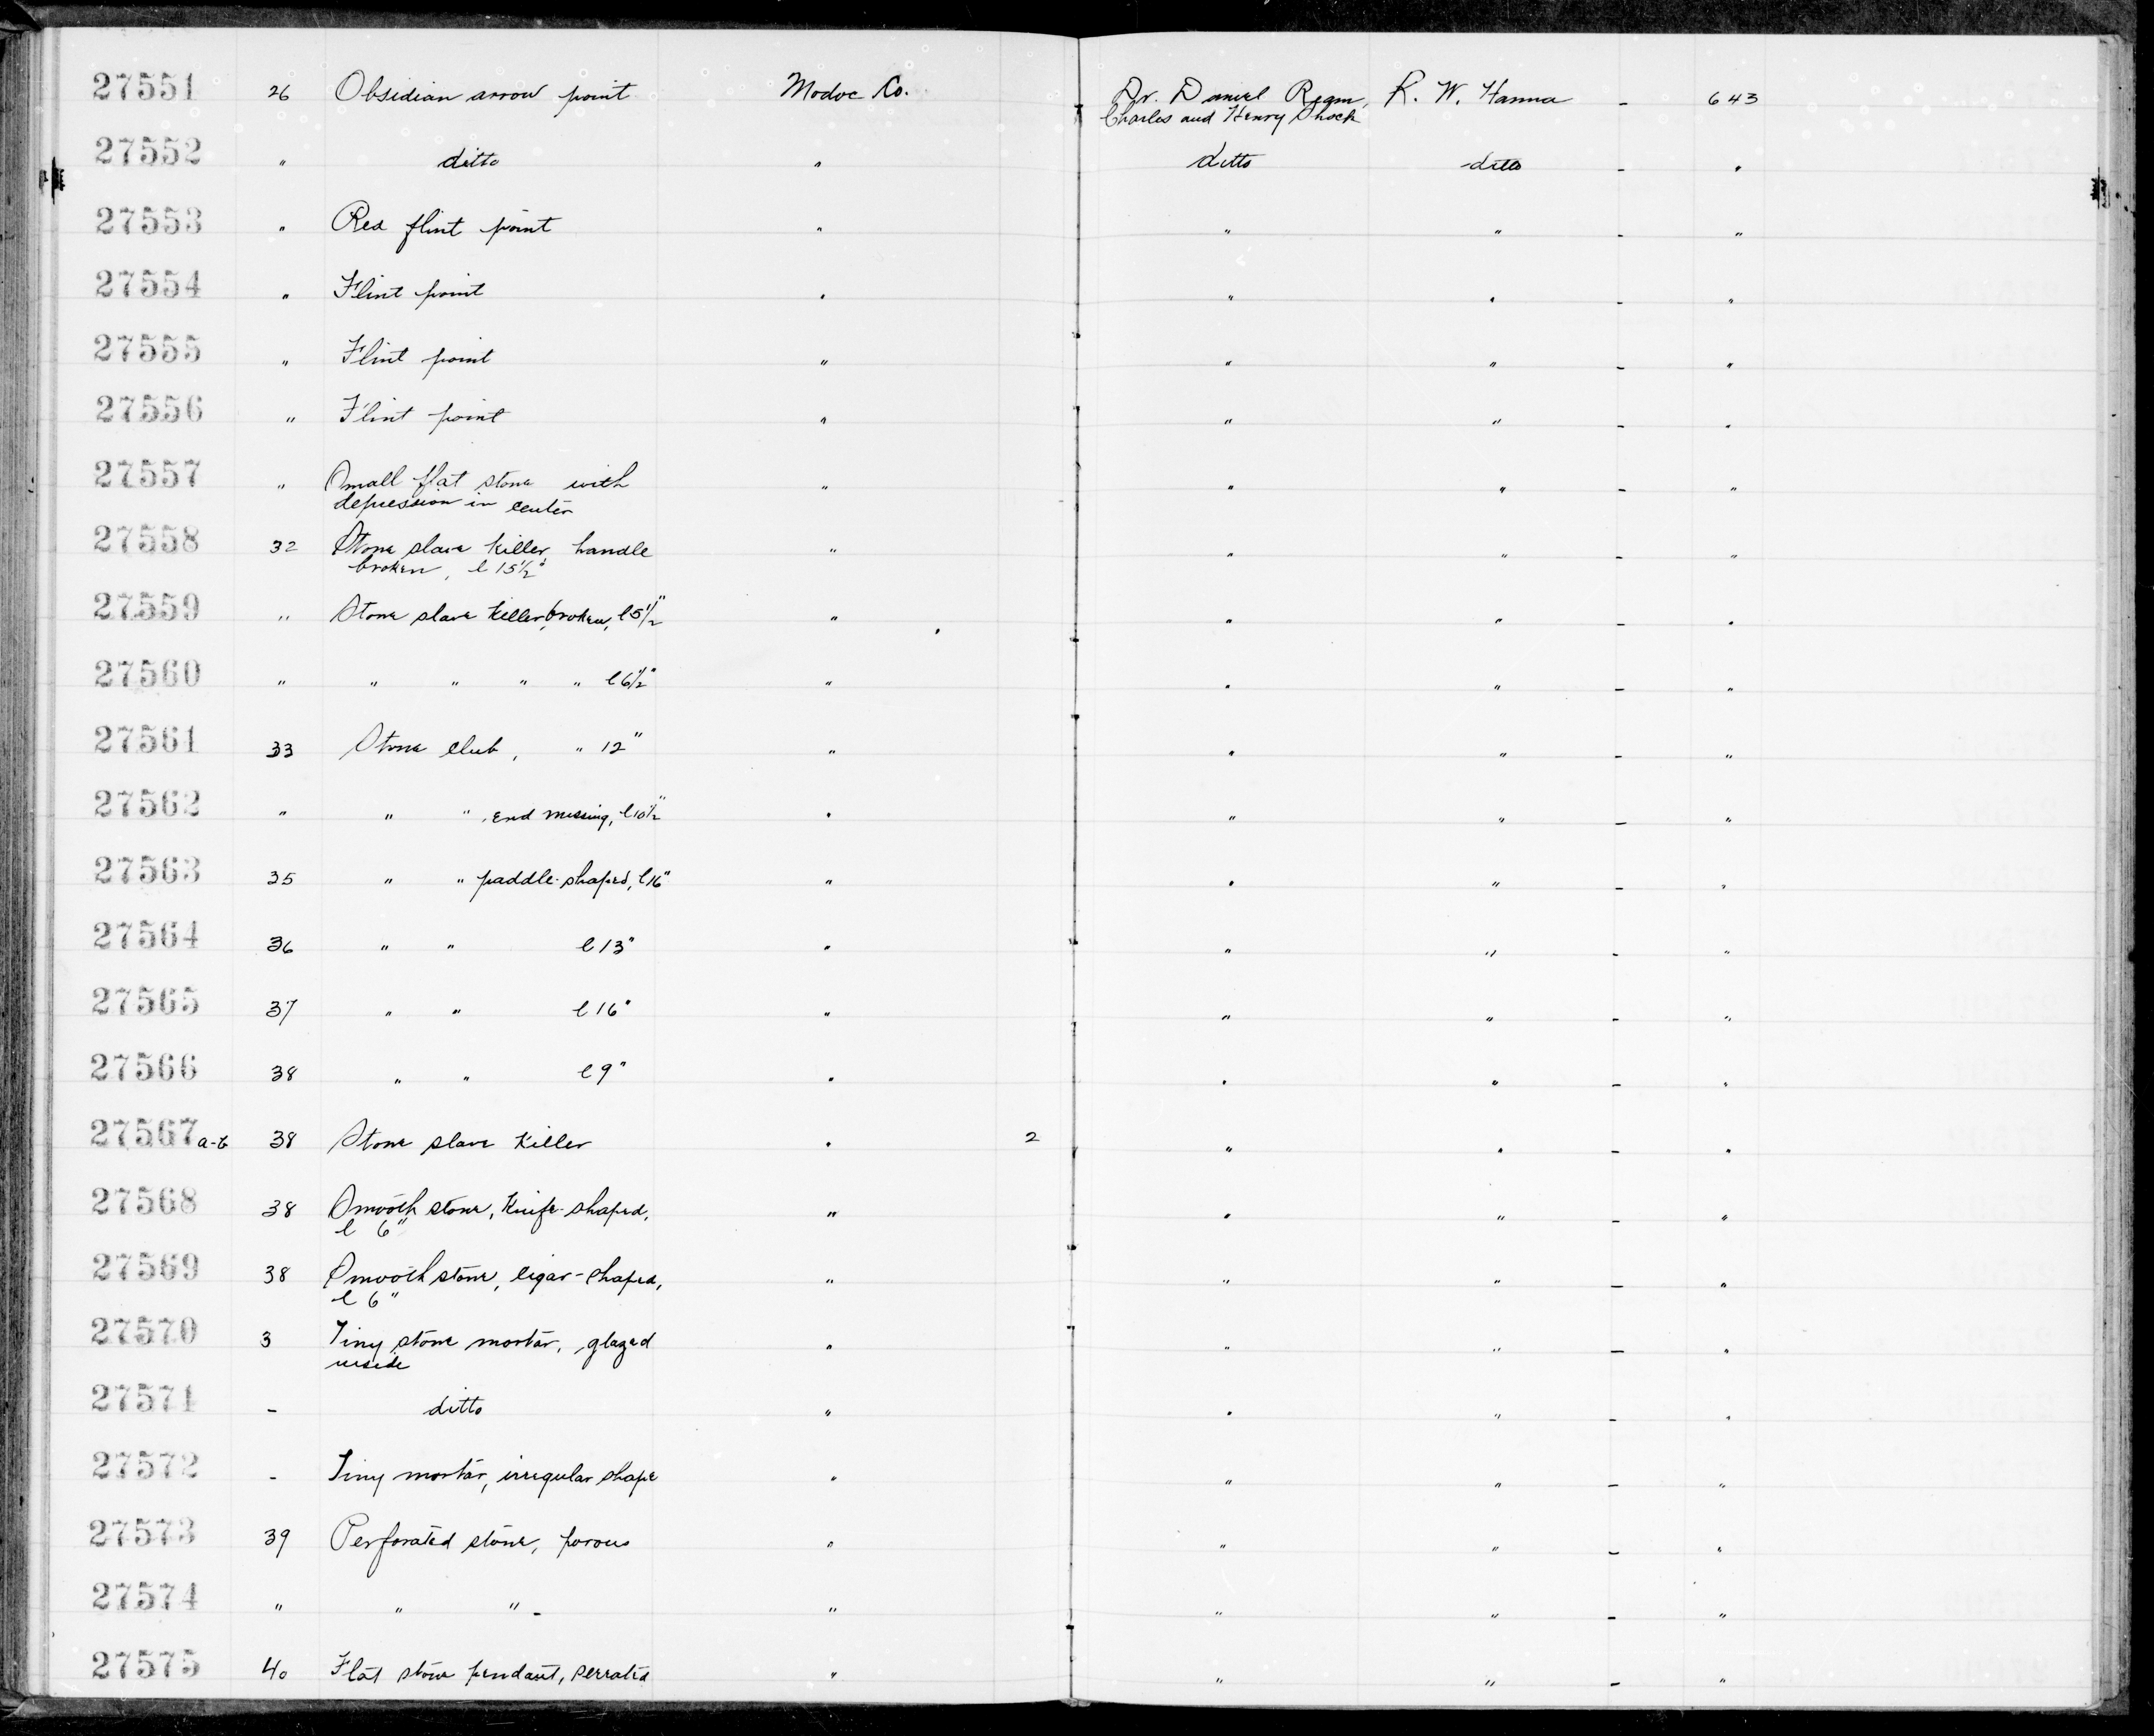 27551 26 Obsidian arrow point Modoc Co. Dr. Daniel Ream, R. W. Hanna - 643
Charles and Henry Shock
27552 " ditto " ditto ditto - "
27553 " Red flint point " " " - "
27554 " Flint point " " " - "
27555 " Flint point " " " - "
27556 " Flint point " " " - "
27557 " Small flat stone with " " " - "
depression in center
27558 32 Stone slave killer, handle " " " - "
broken, l 15½"
27559 " Stone slave killer, broken, l 5½" " " " - "
27560 " " " " " l 6½" " " " - "
27561 33 Stone club, " 12" " " " - "
27562 " " " , end missing, l 10½" " " " - "
27563 35 " " paddle-shaped, l 16" " " " - "
27564 36 " " l 13" " " " - "
27565 37 " " l 16" " " " - "
27566 38 " " l 9" " " " - "
27567 a-b 38 Stone slave killer " 2 " " - "
27568 38 Smooth stone, knife-shaped, " " " - "
l 6"
27569 38 Smooth stone, cigar-shaped, " " " - "
l 6"
27570 3 Tiny stone mortar, glazed " " " - "
inside
27571 - ditto " " " - "
27572 - Tiny mortar, irregular shape " " " - "
27573 39 Perforated stone, porous " " " - "
27574 " " " - " " " - "
27575 40 Flat stone pendant, serrated " " " - "